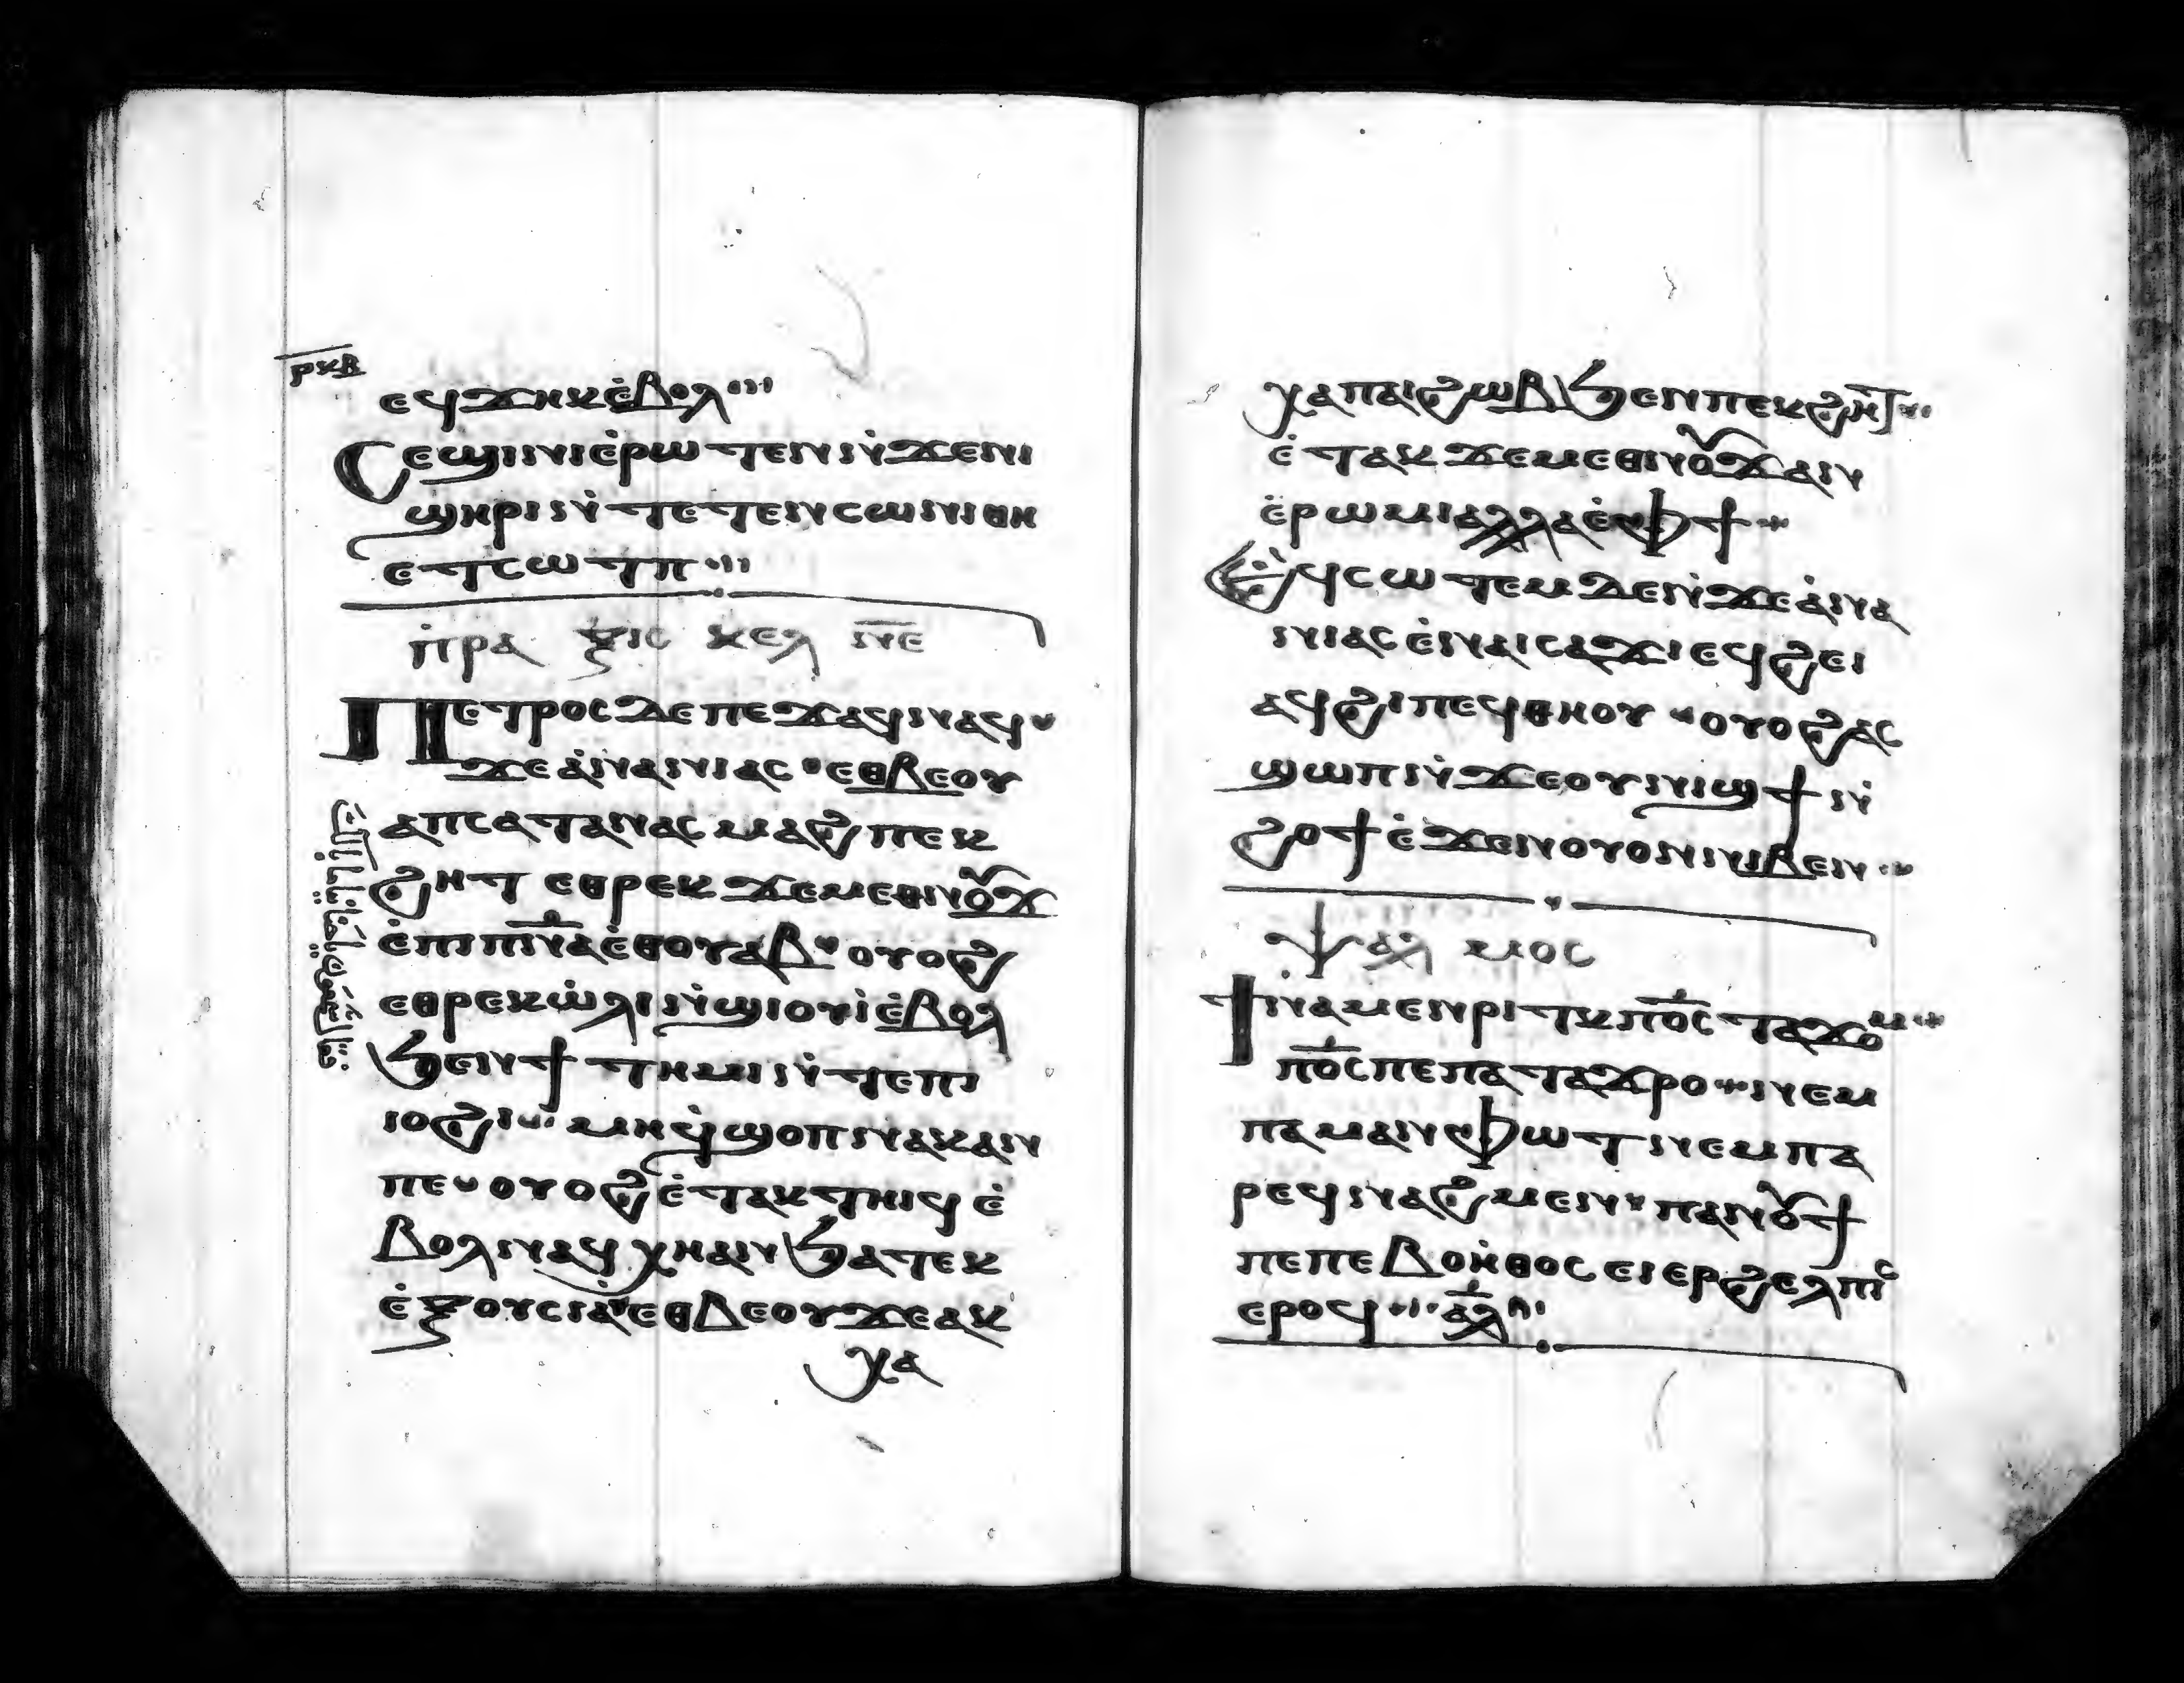 ⲣⲕⲃ
ⲉϥϫⲏⲕ ⲉ̇ⲃⲟⲗ
Ⲥⲉϣⲓⲛⲓ ⲉ̇ⲣⲱⲧⲉⲛ ⲛ̇ϫⲉⲛⲓ
ϣⲏⲣⲓ ⲛ̇ⲧⲉ ⲧⲉⲛⲥⲱⲛⲓ ⲑⲏ
ⲉⲧⲥⲱⲧⲡ
ⲡ̇ⲣⲁⲝⲓⲥ ⲕⲉⲗ ⲛ̅ⲉ̅
Ⲡⲉⲧⲣⲟⲥ ⲇⲉ ⲡⲉϫⲁϥ ⲛⲁϥ
ϫⲉ ⲁ̇ⲛⲁⲛⲓⲁⲥ ⲉⲑⲃⲉⲟⲩ
ⲁⲡⲥⲁⲧⲁⲛⲁⲥ ⲙⲁϩ ⲡⲉⲕ
ϩⲏⲧ ⲉⲑⲣⲉⲕϫⲉⲙⲉⲑⲛⲟⲩϫ
ⲉ̇ⲡⲓⲡ̅ⲛ̅ⲁ̅ ⲉ̇ⲑⲟⲩⲁⲃ ⲟⲩⲟϩ
ⲉⲑⲣⲉⲕⲱ̇ⲗⲓ ⲛ̇ϣⲓⲟⲩⲓ̇ ⲉ̇ⲃⲟⲗ
ϧⲉⲛϯⲧⲏⲙⲓ ⲛ̇ⲧⲉⲡⲓ
ⲓⲟϩⲓ ⲙⲏ ⲉϥϣⲟⲡ ⲛⲁⲕ ⲁⲛ
ⲡⲉ ⲟⲩⲟϩ ⲉ̇ⲧⲁⲕⲧⲏⲓϥ ⲉ̇
ⲃⲟⲗ ⲛⲁϥⲭⲏ ⲁⲛ ϧⲁⲧⲉⲕ
ⲉ̇ⲝⲟⲩⲥⲓⲁ ⲉⲑⲃⲉⲟⲩ ϫⲉⲁⲕ
ⲭⲁ
ⲭⲁⲡⲁⲓϩⲱⲃ ϧⲉⲛⲡⲉⲕϩⲏⲧ
ⲉ̇ⲧⲁⲕϫⲉⲙⲉⲑⲛⲟⲩϫ ⲁⲛ
ⲉ̇ⲣⲱⲙⲓ ⲁⲗⲗⲁ ⲉ̇ⲫϯ
Ⲉⲧⲁϥⲥⲱⲧⲉⲙ ⲇⲉ ⲛ̇ϫⲉ ⲁ̇ⲛⲁ
ⲛⲓⲁⲥ ⲉ̇ⲛⲁⲓⲥⲁϫⲓ ⲉϥϩⲉⲓ
ⲁϥϩⲓ ⲡⲉϥⲑⲏⲟⲩ ⲟⲩⲟϩ ⲁⲥ
ϣⲱⲡⲓ ⲛ̇ϫⲉ ⲟⲩⲛⲓϣϯ ⲛ̇
ϩⲟϯ ⲉ̇ϫⲉⲛ ⲟⲩⲟⲛ ⲛⲓⲃⲉⲛ
ⲯⲁⲗⲙⲟⲥ
Ϯⲛⲁⲙⲉⲛⲣⲓⲧⲕ ⲡ̅ⲟ̅ⲥ̅ ⲧⲁϫⲟⲙ
ⲡ̅ⲟ̅ⲥ̅ ⲡⲉ ⲡⲁⲧⲁϫⲣⲟ ⲛⲉⲙ
ⲡⲁⲙⲁⲛⲫⲱⲧ ⲛⲉⲙ ⲡⲁ
ⲣⲉϥⲛⲁϩⲙⲉⲛ ⲡⲁⲛⲟⲩϯ
ⲡⲉ ⲡⲉⲃⲟⲏ̇ⲑⲟⲥ ⲉⲓⲉⲣϩⲉⲗⲡⲓⲥ
ⲉⲣⲟϥ ⲁⲗ